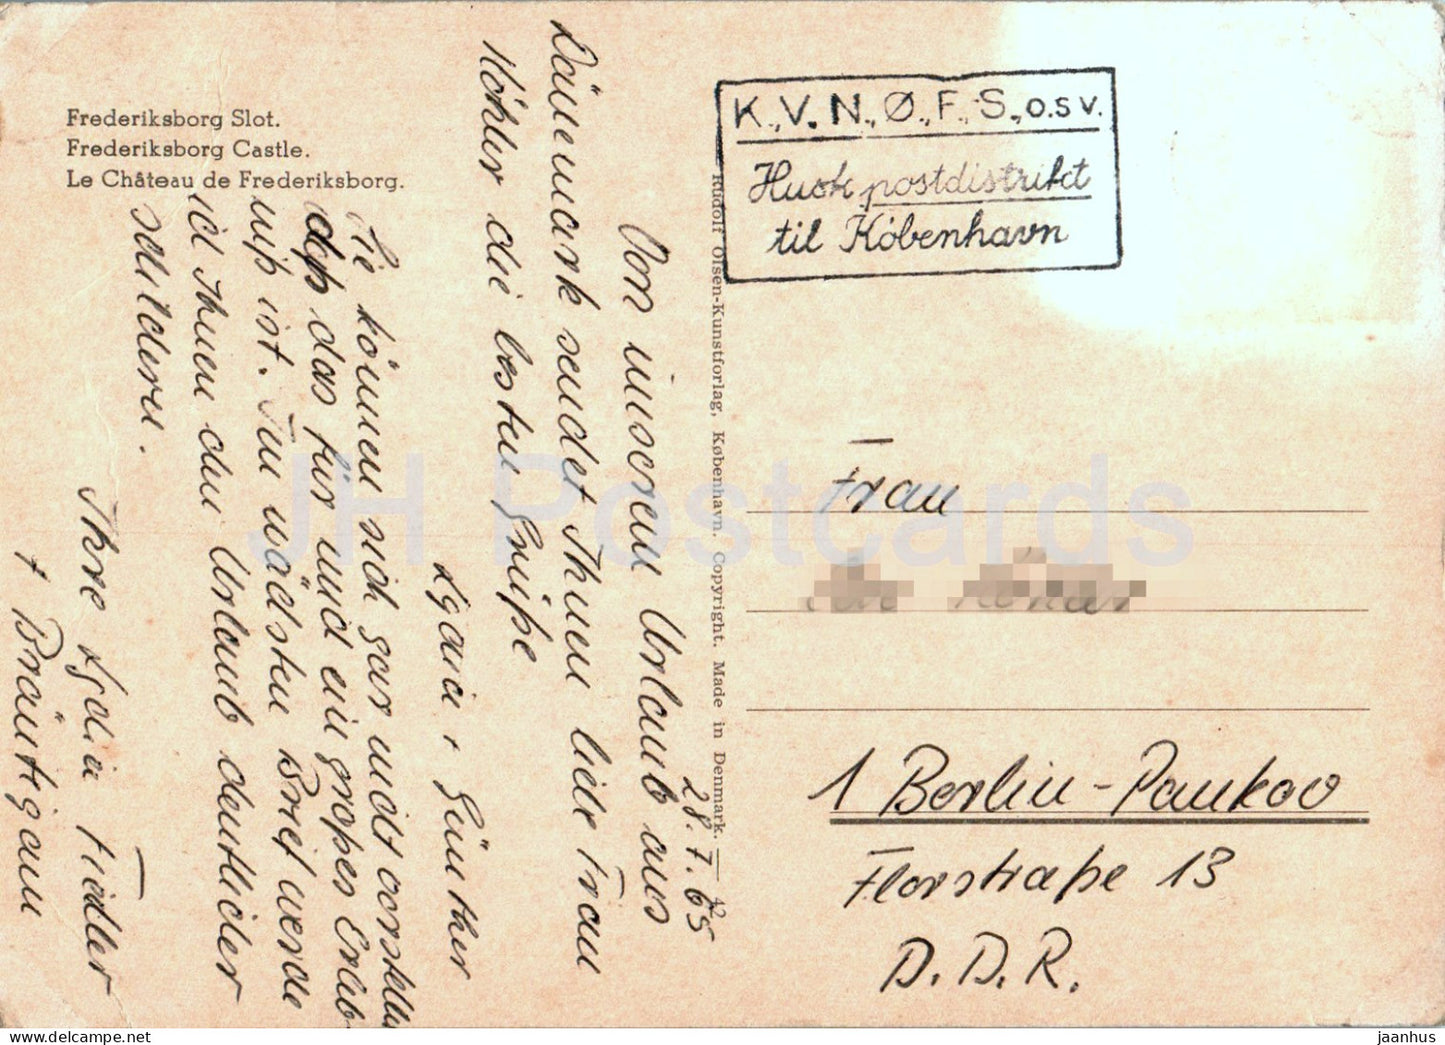 Frederiksborg Slot.
Frederiksborg Castle.
Le Château de Frederiksborg.
K., V. N., Ø., F., S., o.s v.
Husk postdistrikt
til København
Rudolf Olsen-Kunstforlag, København. Copyright. Made in Denmark. — 42
28. 7. 65
Von unseren Urlaub aus
Dänemark sendet Ihnen liebe Frau
Köhler die besten Grüße
Lydia + Günther
Sie können sich gar nicht vorstellen
daß das für uns ein großes Erleb-
nis ist. Im nächsten Brief werde
ich Ihnen den Urlaub deutlicher
schildern.
Ihre Lydia Fiedler
+ Bräutigam
Frau
1 Berlin-Pankow
Florstraße 13
D.D.R.
JH Postcards
https://www.delcampe.net
jaanhus